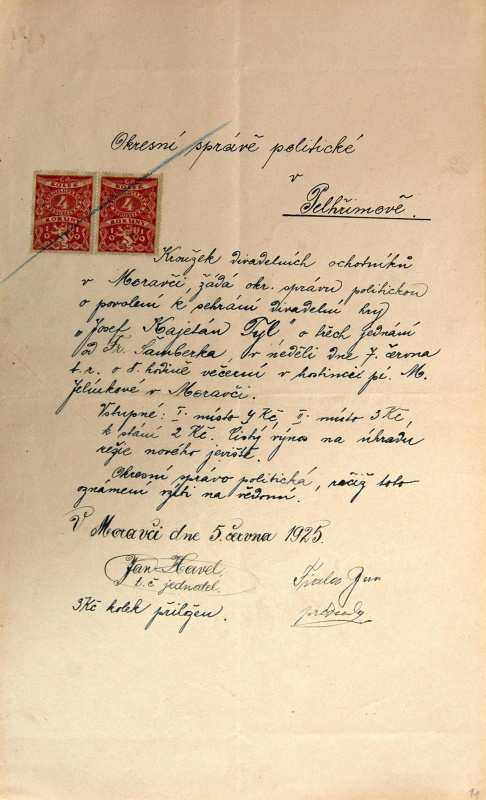 Okresní správě politické
v
Pelhřimově.
KOLEK
4
KORUNY
KOLEK
4
KORUNY
Kroužek divadelních ochotníků
v Moravči, žádá okr. správu politickou
o povolení k sehrání divadelní hry
„Josef Kajetán Tyl" o třech jednání
od Fr. Šamberka, v neděli dne 7. června
t.r. o 8. hodině večerní v hostinci pí. M.
Jelínkové v Moravči.
Vstupné: I. místo 4 Kč, II. místo 3 Kč,
k stání 2 Kč. Čistý výnos na úhradu
režie nového jeviště.
Okresní správo politická, račiž toto
oznámení vzíti na vědomí.
V Moravči dne 5. června 1925.
Jan Havel,
t.č. jednatel.
3 Kč kolek přiložen.